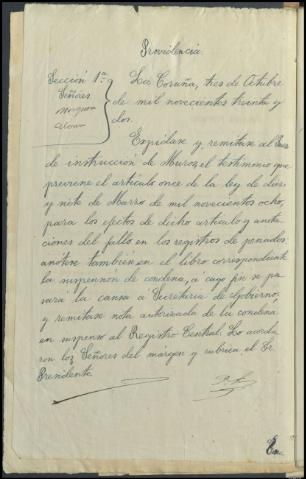 Providencia.
Sección 1ª
Señores
La Coruña, tres de Octubre
de mil novecientos treinta y
dos.
Expídase y remítase al Juez
de instrucción de Muros el testimonio que
previene el artículo once de la ley de diez
y siete de Marzo de mil novecientos ocho,
para los efectos de dicho artículo y anota
ciones del fallo en los registros de penados;
anótese también en el libro correspondiente
la suspensión de condena, á cuyo fin se pa
sará la causa a Secretaría de Gobierno,
y remítase nota autorizada de la condena
en suspenso al Registro Central. Lo acorda
ron los Señores del margen y rubrica el Sr.
Presidente